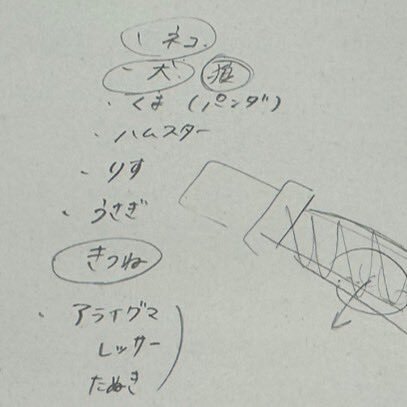 ・ネコ.
・犬. 狼
・くま (パンダ)
・ハムスター
・りす
・うさぎ
きつね
・アライグマ
レッサー
たぬき